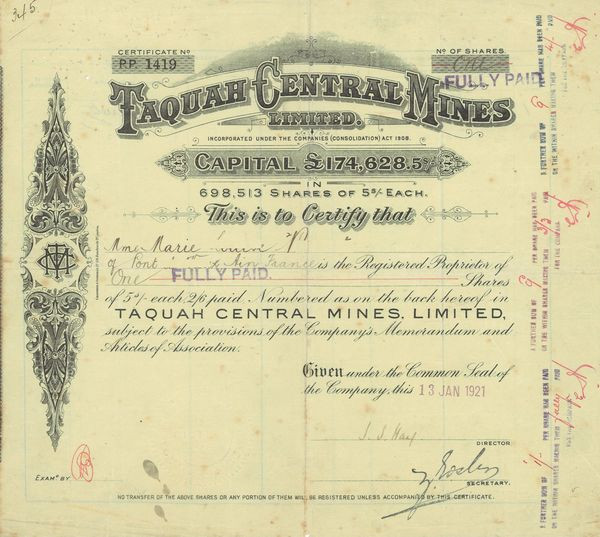 345.
CERTIFICATE No
P.P. 1419
No OF SHARES.
One
FULLY PAID
TAQUAH CENTRAL MINES
LIMITED.
INCORPORATED UNDER THE COMPANIES (CONSOLIDATION) ACT 1908.
CAPITAL £174,628.5/-
IN
698,513 SHARES OF 5/- EACH.
This is to Certify that
Mme Marie
of Pont Ain France is the Registered Proprietor of
One FULLY PAID. Shares
of 5/- each, 2/6 paid Numbered as on the back hereof in
TAQUAH CENTRAL MINES, LIMITED,
subject to the provisions of the Company's Memorandum and
Articles of Association.
Given under the Common Seal of
the Company, this 13 JAN 1921
DIRECTOR
SECRETARY.
EXAMD BY
NO TRANSFER OF THE ABOVE SHARES OR ANY PORTION OF THEM WILL BE REGISTERED UNLESS ACCOMPANIED BY THIS CERTIFICATE.
A FURTHER SUM OF 9 PER SHARE HAS BEEN PAID
ON THE WITHIN SHARES MAKING THEM 4/- PAID
FOR THE COMPANY
A FURTHER SUM OF 9 PER SHARE HAS BEEN PAID
ON THE WITHIN SHARES MAKING THEM 3/3 PAID
FOR THE COMPANY
A FURTHER SUM OF 1/- PER SHARE HAS BEEN PAID
ON THE WITHIN SHARES MAKING THEM fully PAID
FOR THE COMPANY